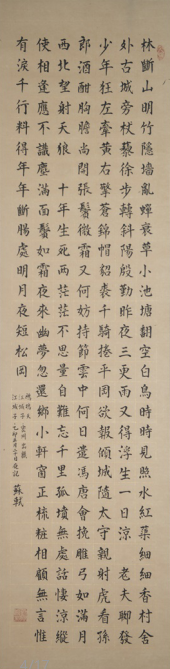 林斷山明竹隱墻亂蟬衰草小池塘翻空白鳥時時見照水紅蕖細細香村舍
外古城旁杖藜徐步轉斜陽殷勤昨夜三更雨又得浮生一日涼 老夫聊發
少年狂左牽黃右擎蒼錦帽貂裘千騎捲平岡欲報傾城隨太守親射虎看孫
郎酒酣胸膽尚開張鬢微霜又何妨持節雲中何日遣馮唐會挽雕弓如滿月
西北望射天狼 十年生死兩茫茫不思量自難忘千里孤墳無處話淒涼縱
使相逢應不識塵滿面鬢如霜夜來幽夢忽還鄉小軒窗正梳粧相顧無言惟
有淚千行料得年年斷腸處明月夜短松岡
鷓鴣天
江城子 密州出獵
江城子 乙卯正月二十日夜記
蘇軾